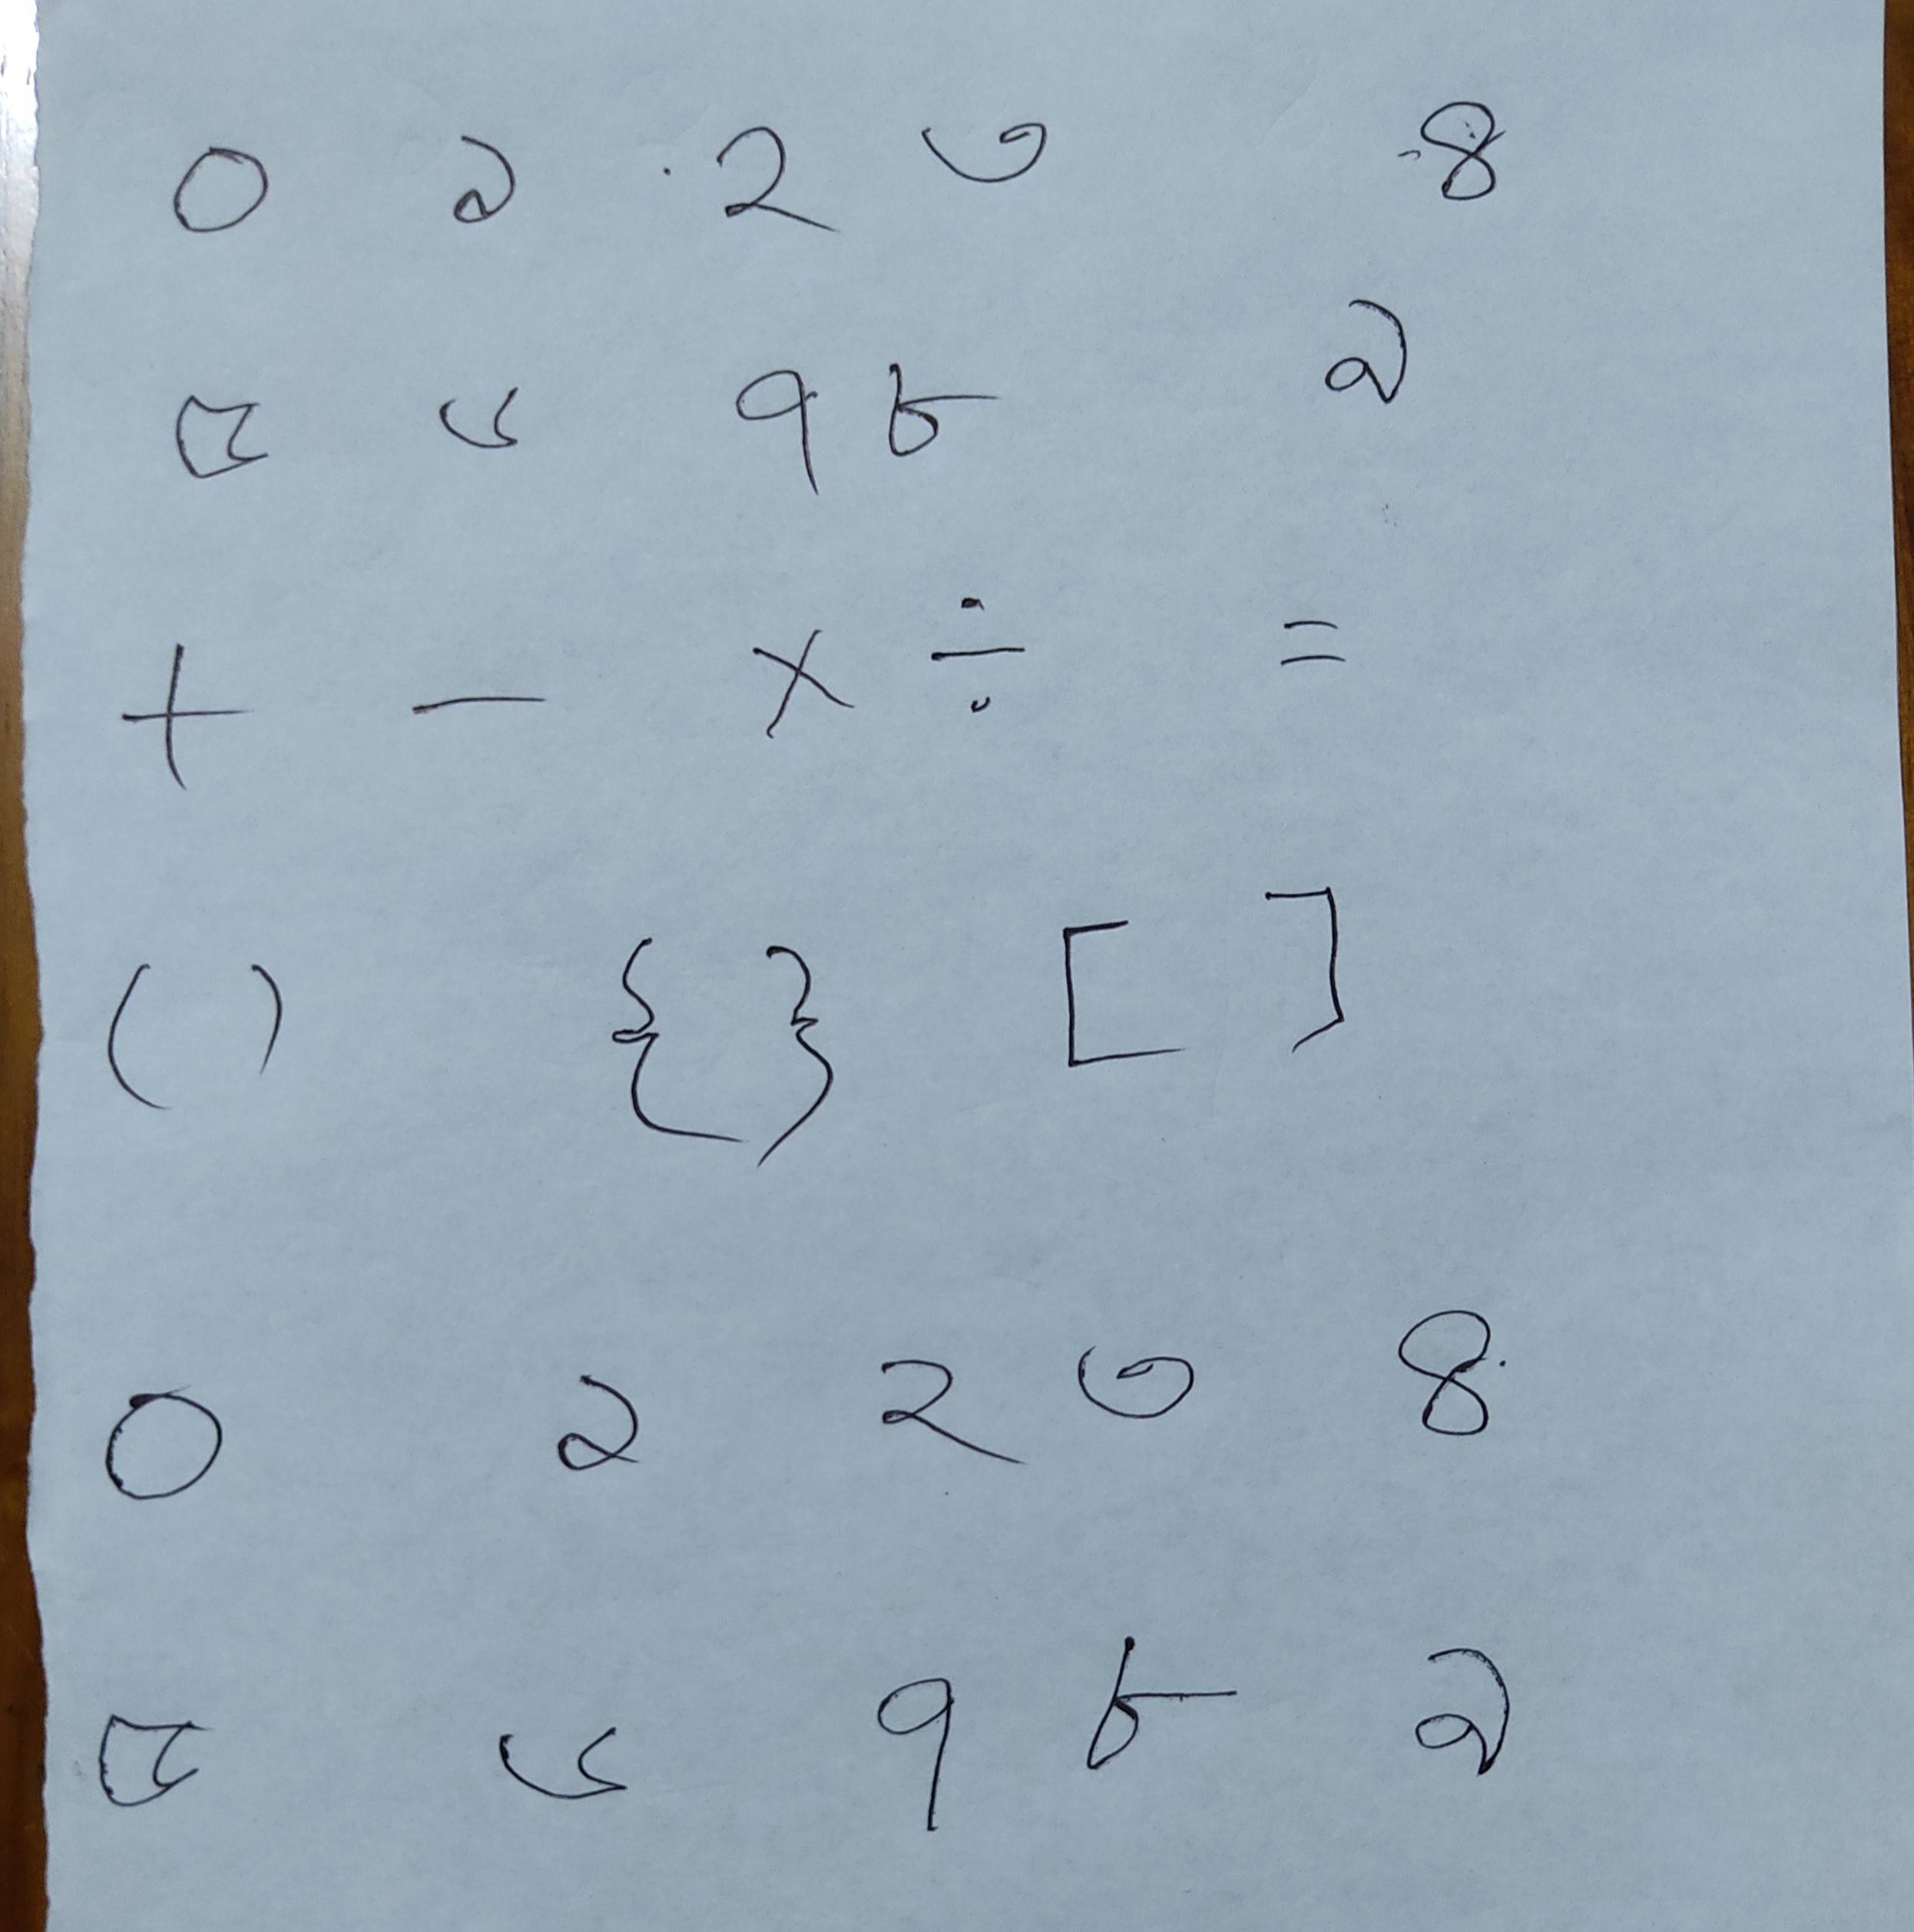 ০ ১ ২ ৩ ৪
৫ ৬ ৭ ৮ ৯
+ − × ÷ =
( ) { } [ ]
০ ১ ২ ৩ ৪
৫ ৬ ৭ ৮ ৯